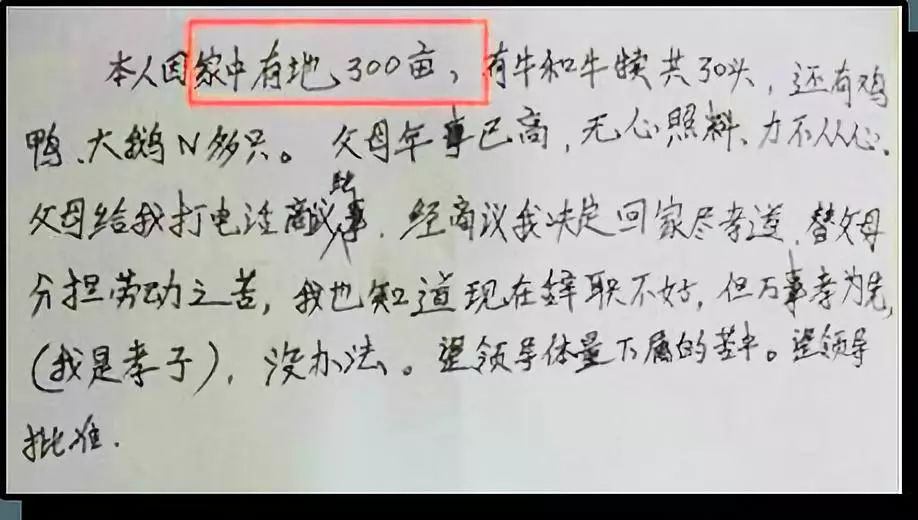 本人因家中有地300亩，有牛和牛犊共30头，还有鸡
鸭、大鹅N多只。父母年事已高，无心照料、力不从心、
父母给我打电话商议此事，经商议我决定回家尽孝道，替父母
分担劳动之苦，我也知道现在辞职不好，但万事孝为先，
(我是孝子)，没办法。望领导体量下属的苦中。望领导
批准.